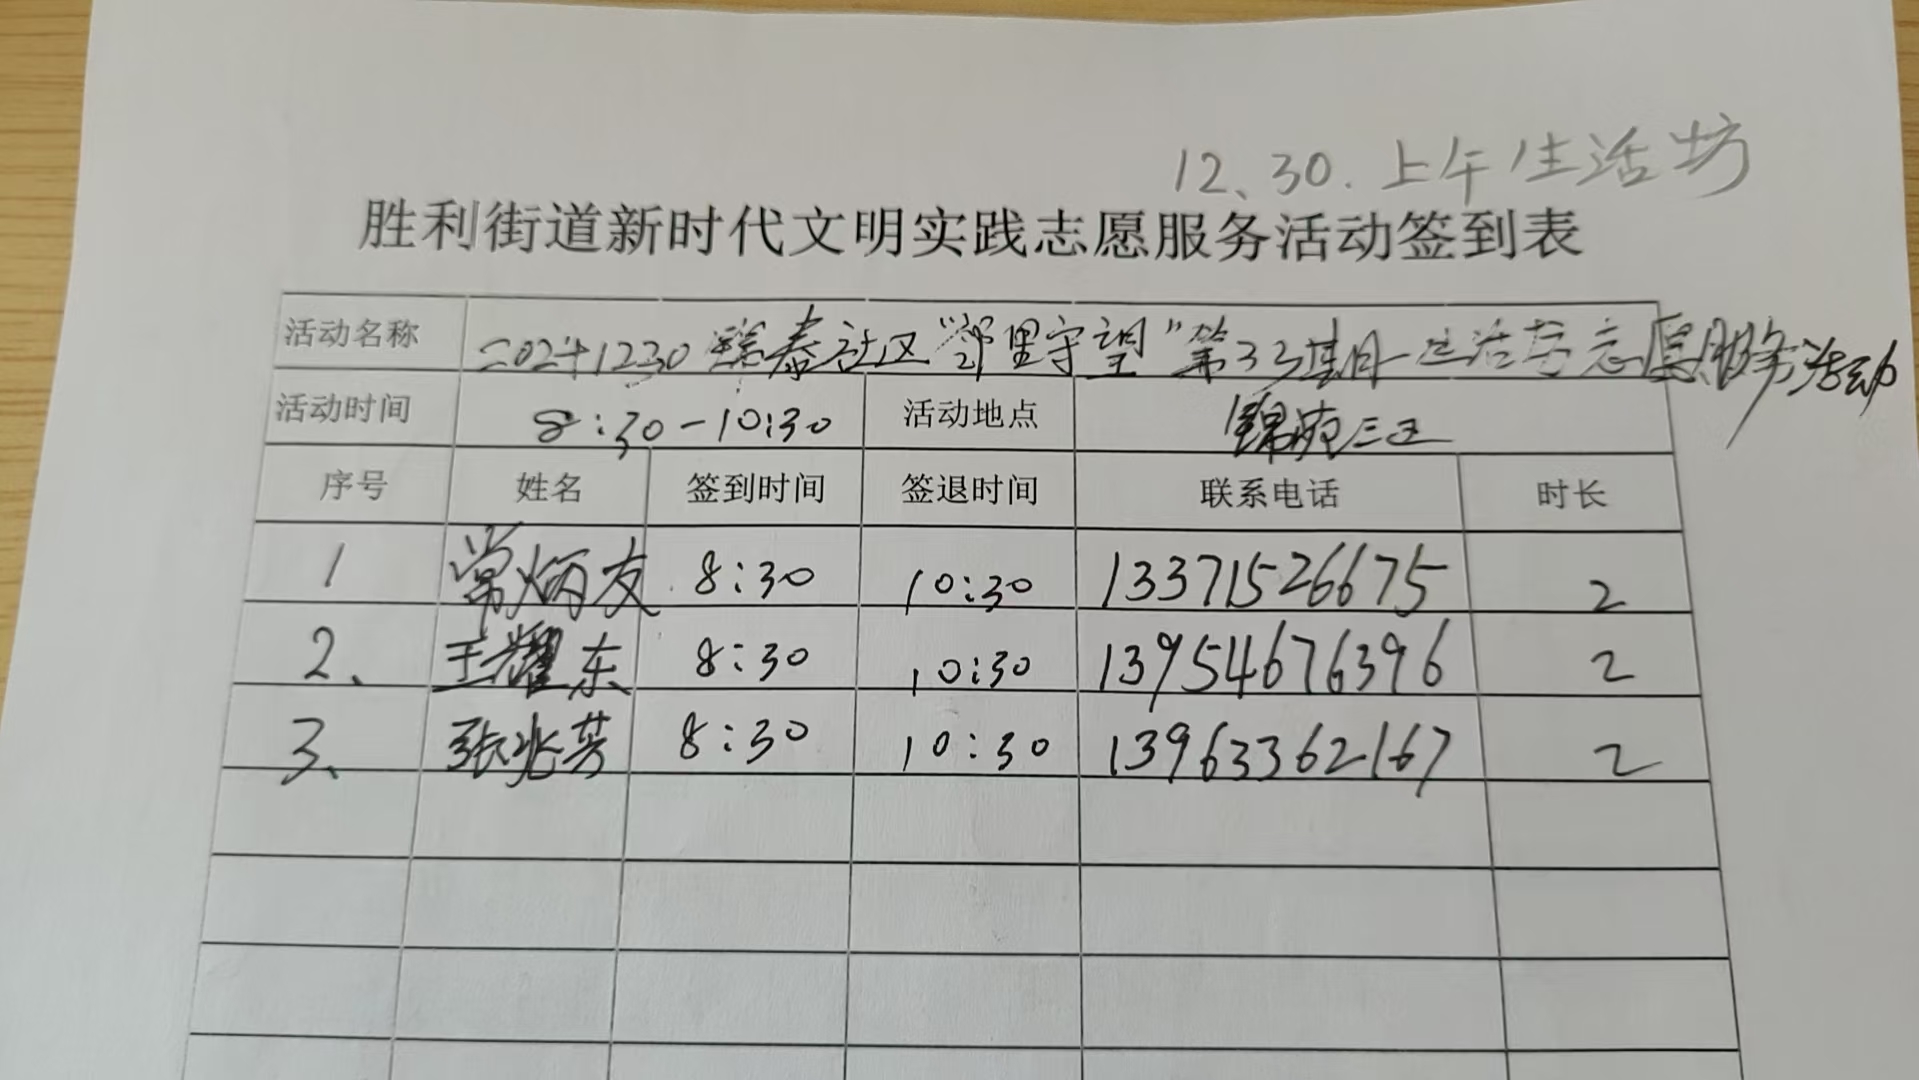 12、30.上午生活坊
胜利街道新时代文明实践志愿服务活动签到表
活动名称 20241230 社区“邻里守望”第33期 生活坊志愿服务活动
活动时间 8:30-10:30 活动地点 锦苑三区
序号 姓名 签到时间 签退时间 联系电话 时长
1 常炳友 8:30 10:30 13371526675 2
2、 王耀东 8:30 10:30 13954676396 2
3、 张兆芳 8:30 10:30 13963362167 2